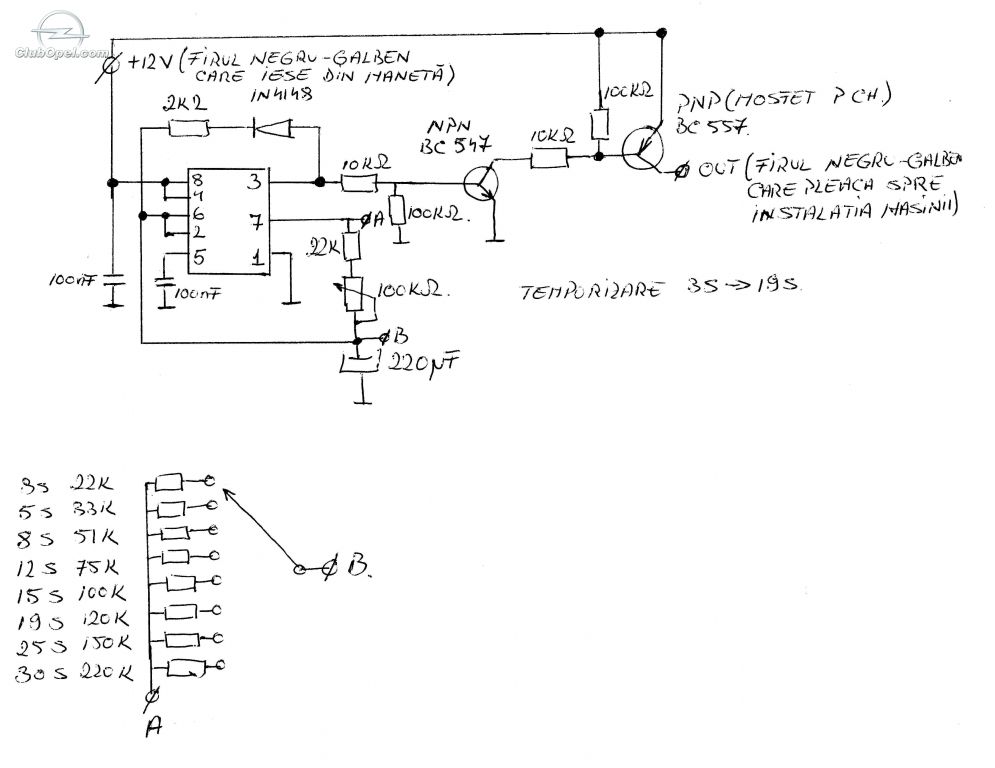 ClubOpel.com
+12V (FIRUL NEGRU-GALBEN
CARE IESE DIN MANETĂ)
1N4148
2KΩ
100KΩ
PNP (MOSFET P CH.)
BC 557.
NPN
BC 547
10KΩ
10KΩ
OUT (FIRUL NEGRU-GALBEN
CARE PLEACA SPRE
INSTALATIA MASINII)
8
3
4
6
7
2
5
1
A
100KΩ.
22K
100nF
100nF
100KΩ.
TEMPORIZARE 3S → 19S.
B
220µF
3S 22K
5S 33K
8S 51K
12S 75K
15S 100K
19S 120K
25S 150K
30S 220K
B.
A